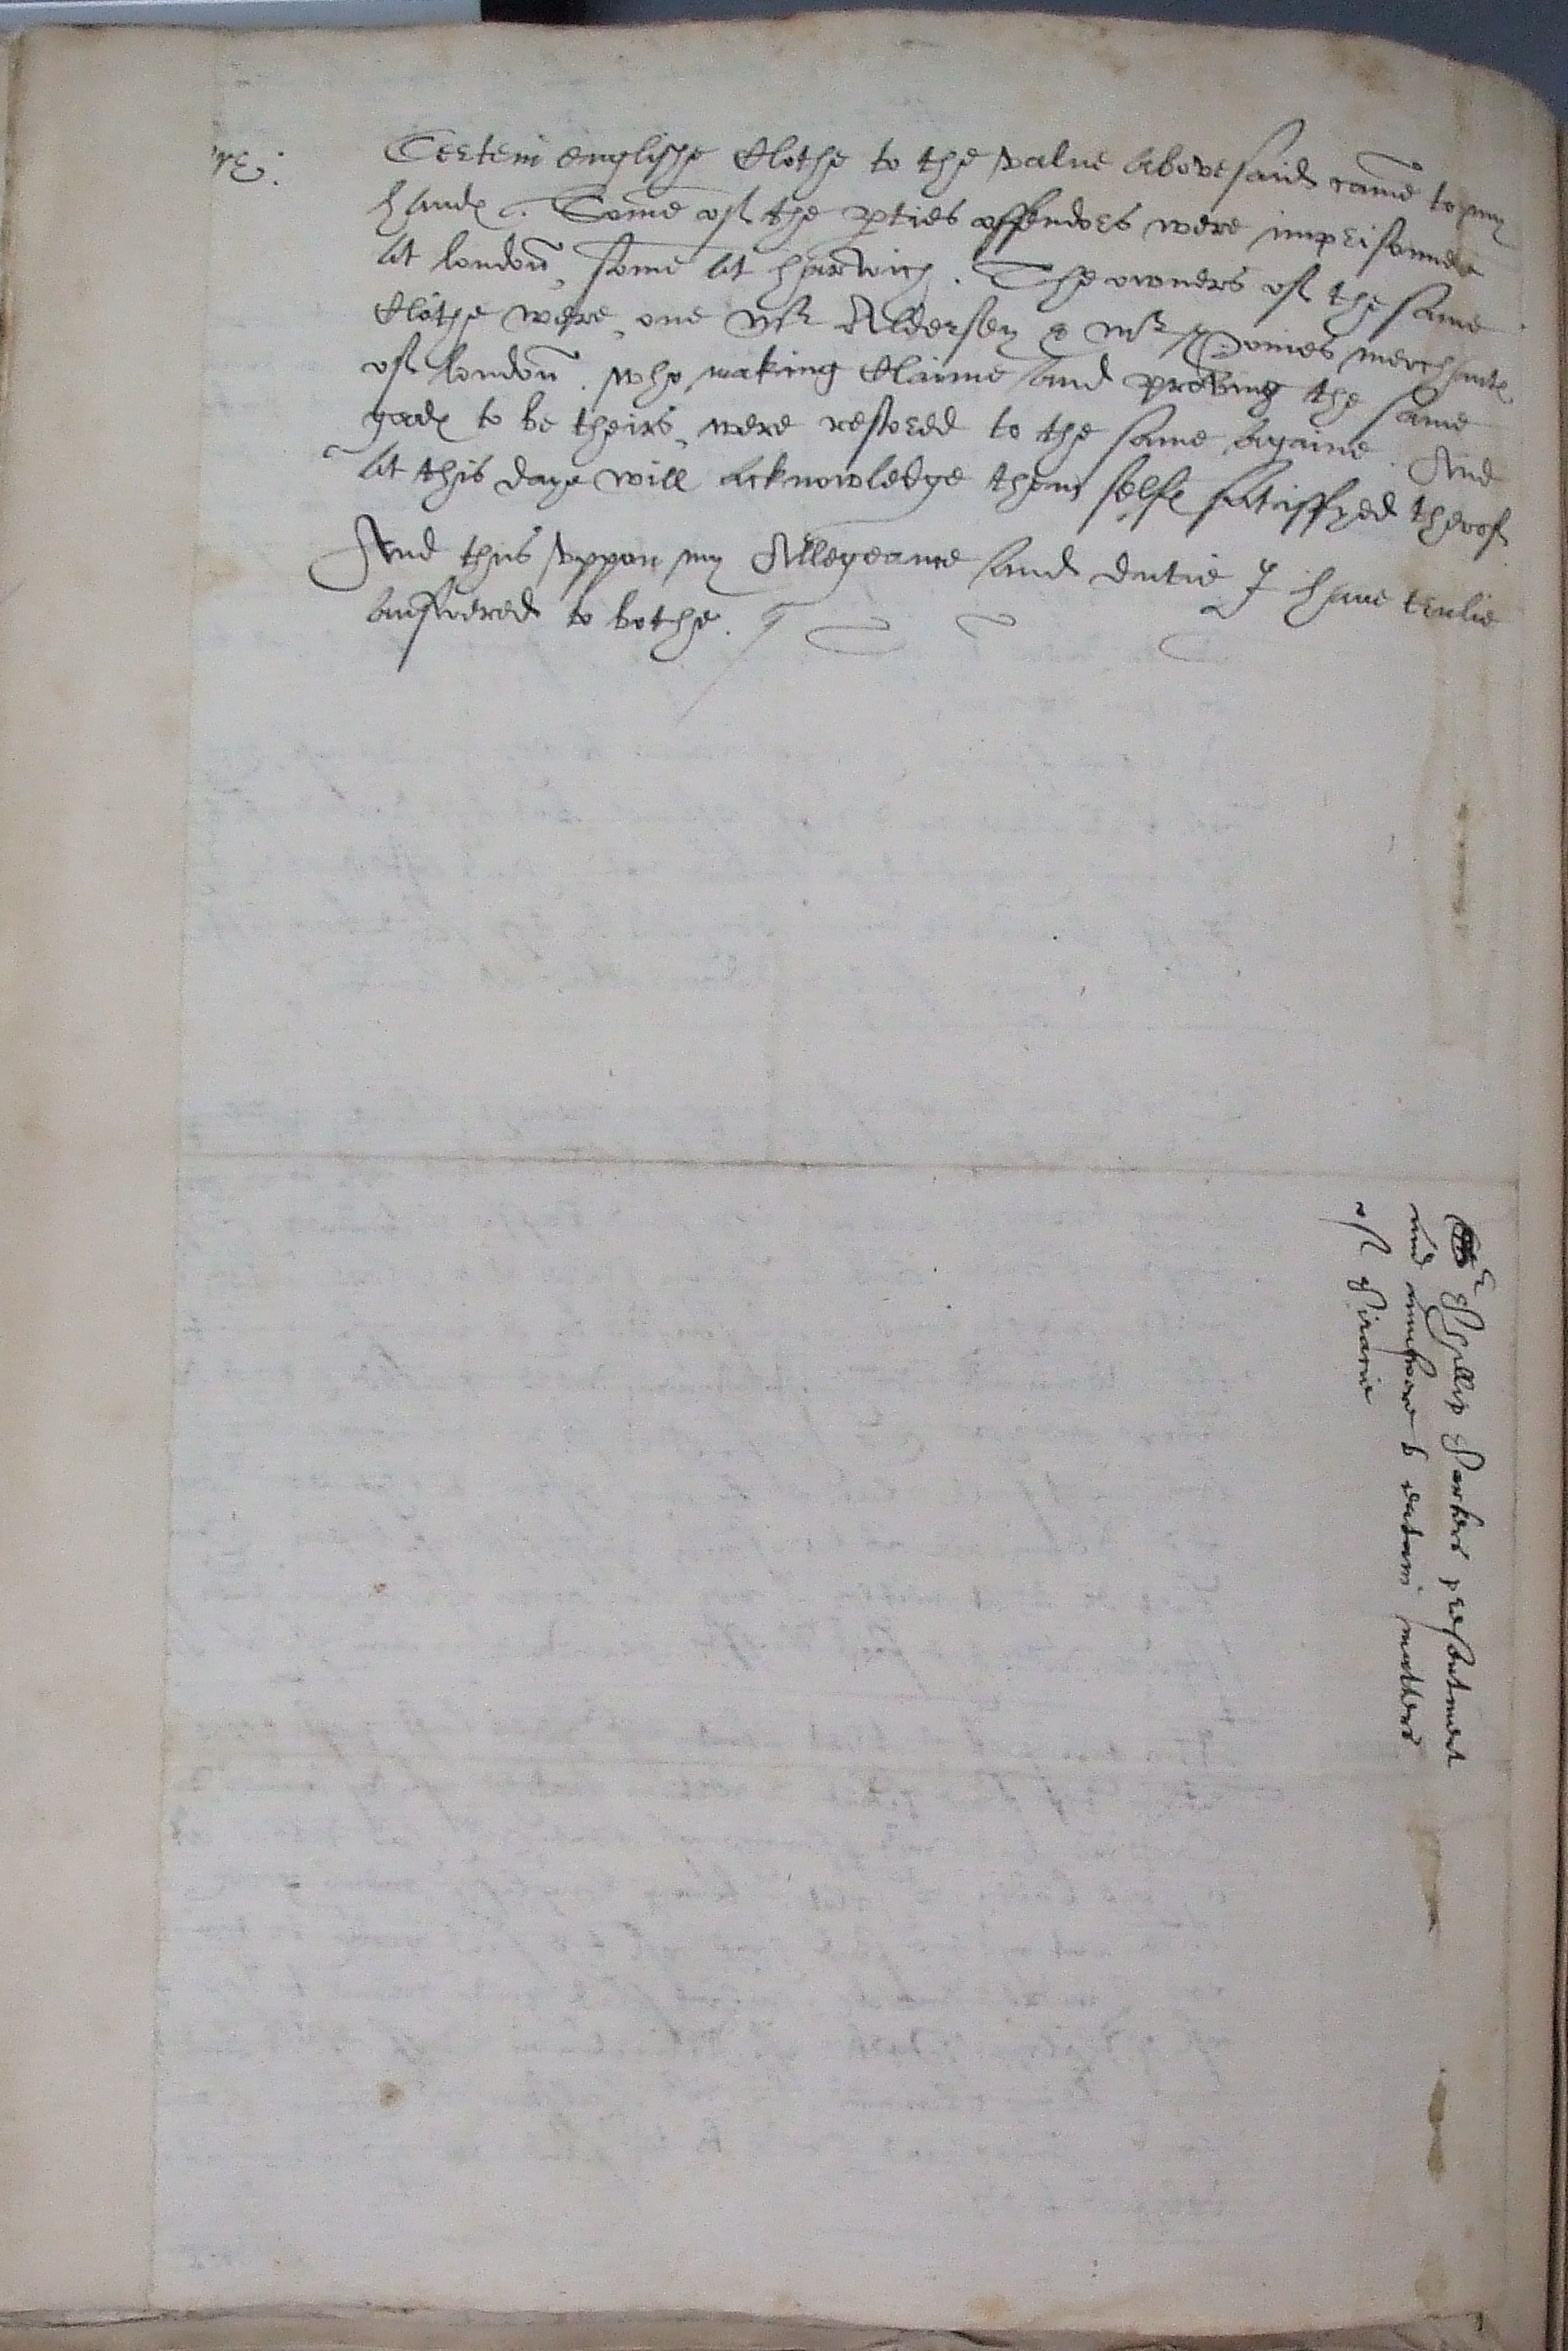 re:
Certein englishe Clothe to the value abovesaid came to my
handℯ. Some of the pties offendors were imprisoned
at london, some at harwich. The owners of the same
Clothe were, one Mr Aldersey & Mr Poines merchantℯ
of london. who making Claime and proving the same
goodℯ to be theirs, were restored to the same againe. And
at this daye will acknowledge them selfℯ satisfyed therof
And this vppon my Allegeance and dutie I have trulie
answered to bothe.
Sr Phillip Parkers presentment
and answere to certain matters
of Piracie